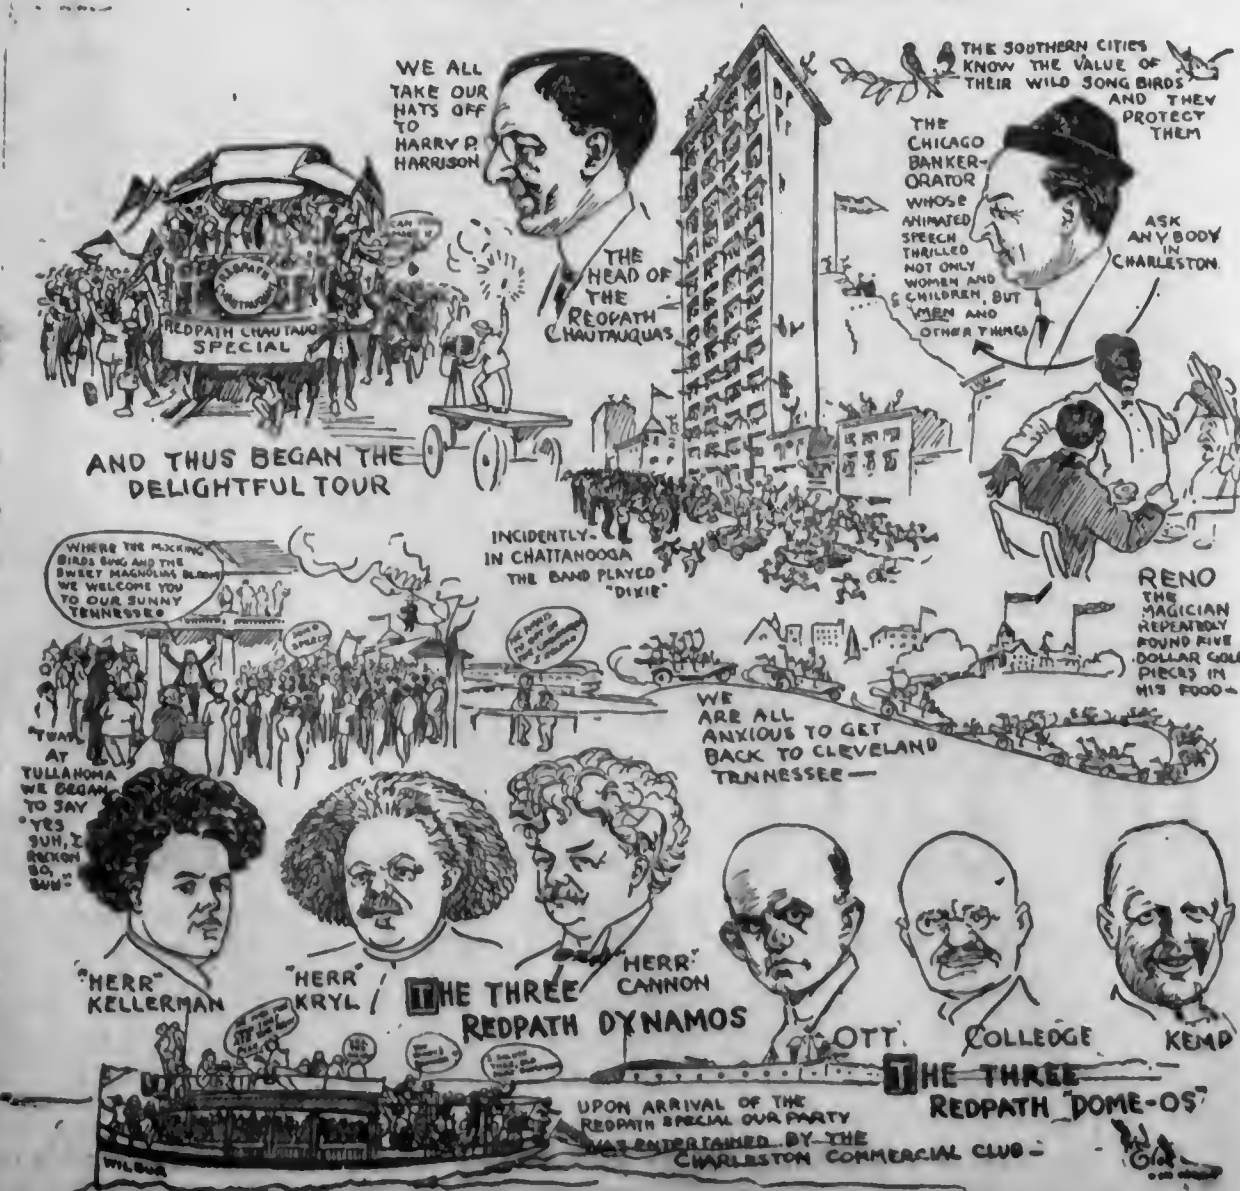 WE ALL
TAKE OUR
HATS OFF
TO
HARRY P.
HARRISON
THE
HEAD OF
THE
REDPATH
CHAUTAUQUAS
THE SOUTHERN CITIES
KNOW THE VALUE OF
THEIR WILD SONG BIRDS
AND THEY
PROTECT
THEM
THE
CHICAGO
BANKER-
ORATOR
WHOSE
ANIMATED
SPEECH
THRILLED
NOT ONLY
WOMEN AND
CHILDREN, BUT
MEN AND
OTHER THINGS
ASK
ANYBODY
IN
CHARLESTON.
REDPATH
CHAUTAUQUA
REDPATH CHAUTAUQ
SPECIAL
AND THUS BEGAN THE
DELIGHTFUL TOUR
INCIDENTLY-
IN CHATTANOOGA
THE BAND PLAYED
"DIXIE"
RENO
THE
MAGICIAN
REPEATEDLY
FOUND FIVE
DOLLAR GOLD
PIECES IN
HIS FOOD-
WHERE THE MOCKING
BIRDS SING AND THE
SWEET MAGNOLIAS BLOOM
WE WELCOME YOU
TO OUR SUNNY
TENNESSEE
SPEECH
WE
ARE ALL
ANXIOUS TO GET
BACK TO CLEVELAND
TENNESSEE—
"TWAS
AT
TULLAHOMA
WE BEGAN
TO SAY
"YES
SUH, I
RECKON
SO,
SUH"
"HERR"
KELLERMAN
"HERR"
KRYL
"HERR"
CANNON
THE THREE
REDPATH DYNAMOS
OTT
COLLEDGE
KEMP
THE THREE
REDPATH "DOME-OS"
UPON ARRIVAL OF THE
REDPATH SPECIAL OUR PARTY
WAS ENTERTAINED BY THE
CHARLESTON COMMERCIAL CLUB-
WILBUR